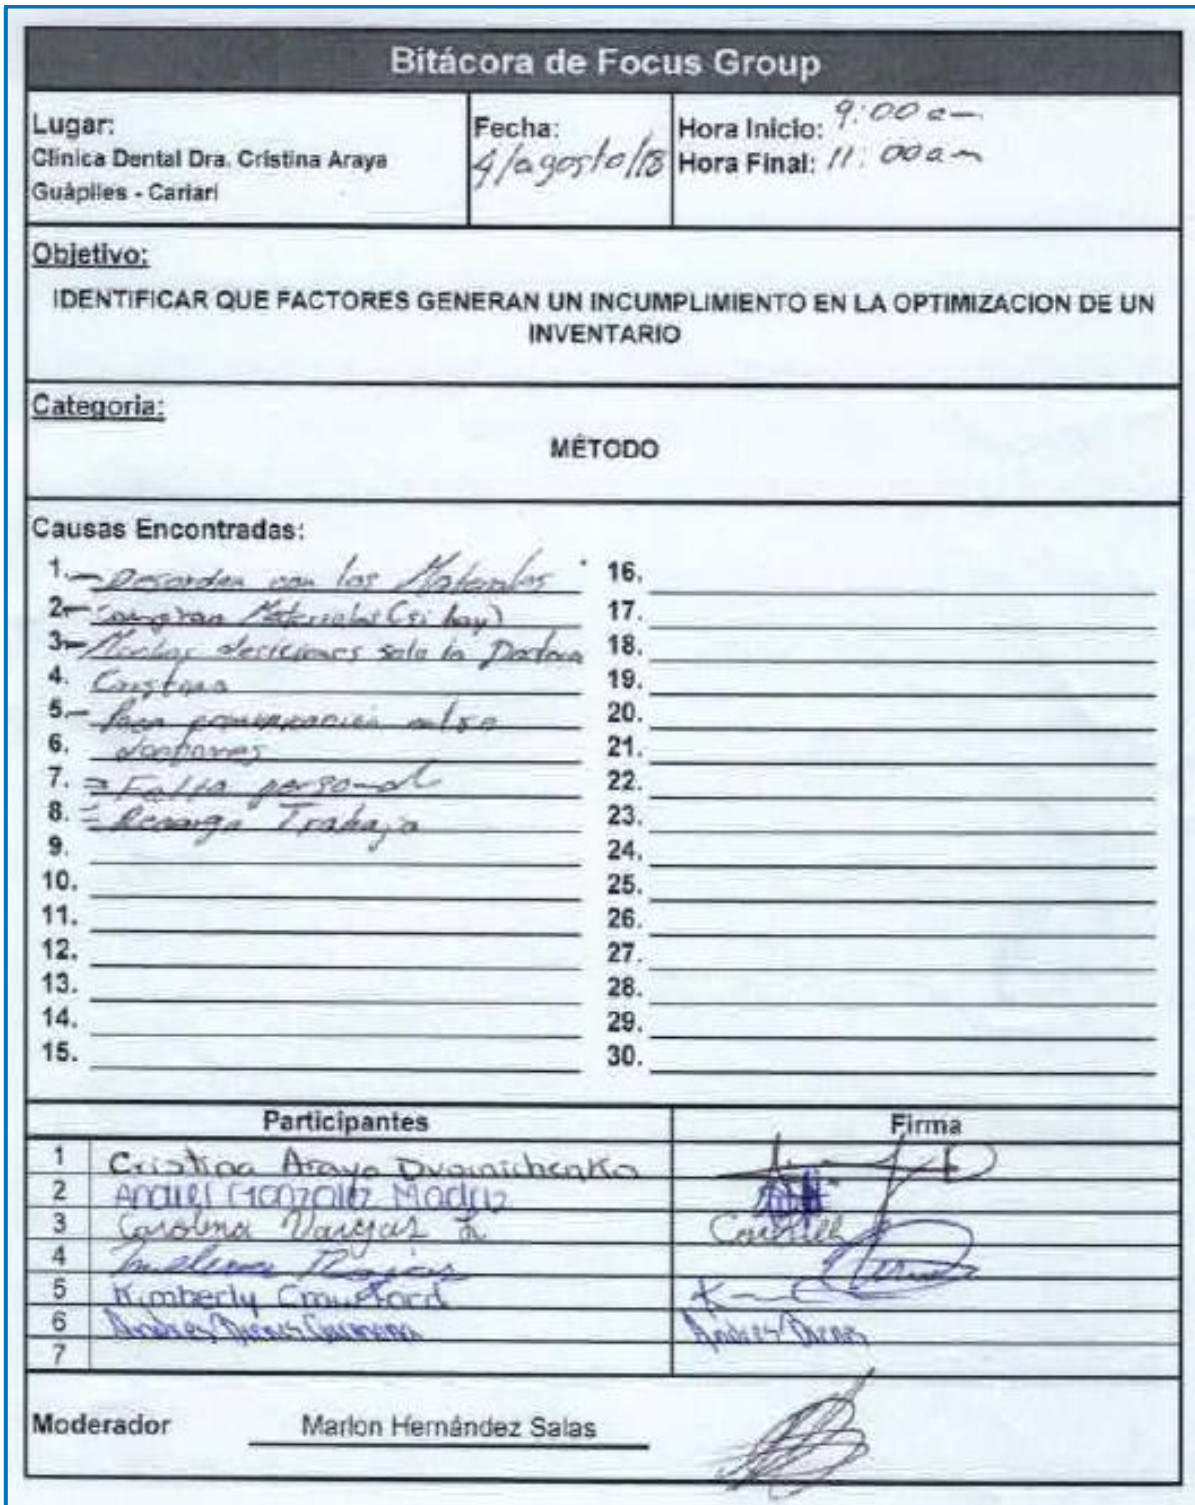 Bitácora de Focus Group
Lugar:
Clinica Dental Dra. Cristina Araya
Guápiles - Cariari
Fecha:
4/agosto/18
Hora Inicio: 9:00 am
Hora Final: 11:00 am
Objetivo:
IDENTIFICAR QUE FACTORES GENERAN UN INCUMPLIMIENTO EN LA OPTIMIZACION DE UN
INVENTARIO
Categoria:
MÉTODO
Causas Encontradas:
1. Desorden con los Materiales
2. Compran Materiales (si hay)
3. Muchas desiciones solo la Doctora
4. Cristina
5. Poca comunicación entre
6. doctores
7. Falta personal
8. Recarga Trabajo
9.
10.
11.
12.
13.
14.
15.
16.
17.
18.
19.
20.
21.
22.
23.
24.
25.
26.
27.
28.
29.
30.
Participantes
Firma
1 Cristina Araya
2 González Madriz
3 Carolina Vargas
4 Rojas
5 Kimberly Crawford
6 Andres
7
Moderador Marlon Hernández Salas